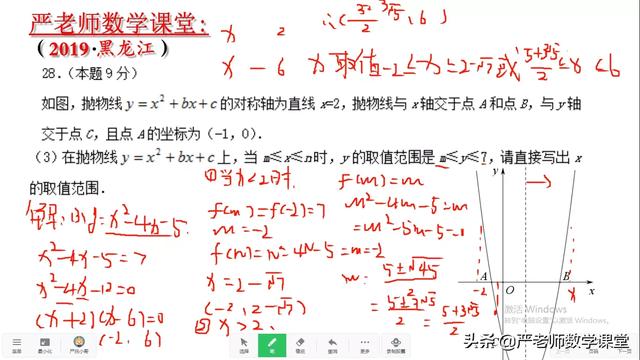 严老师数学课堂:
(2019·黑龙江)
28.(本题9分)
如图,抛物线y=x²+bx+c的对称轴为直线x=2,抛物线与x轴交于点A和点B,与y轴
交于点C,且点A的坐标为(-1,0).
(3)在抛物线y=x²+bx+c上,当m≤x≤n时,y的取值范围是m≤y≤7,请直接写出x
的取值范围.
x 取值 -2≤x≤2-√7 或 5+3√5/2≤x≤6
y=x²-4x-5
x²-4x-5=7
x²-4x-12=0
(x+2)(x-6)=0
(-2, 6)
①当x<2时
f(m)=f(-2)=7
m=-2
f(n)=n²-4n-5=m=-2
x=2-√7
(-2, 2-√7)
② x>2,
f(m)=m
m²-4m-5=m
=m²-5m-5=0
m= 5±√45/2
= 5±3√5/2 = 5+3√5/2
y
A
-2
O
B
x
激活 Windows
头条@严老师数学课堂